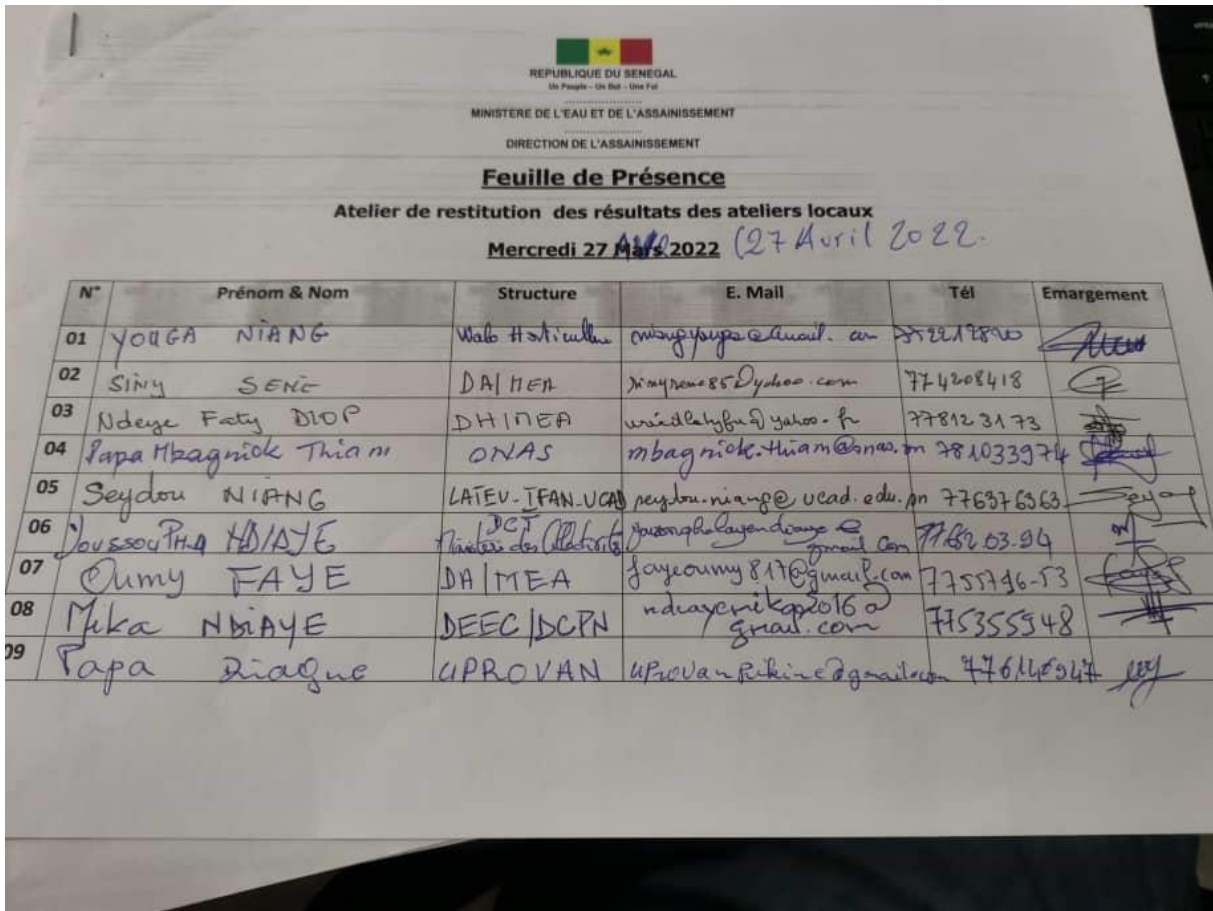 REPUBLIQUE DU SENEGAL
Un Peuple – Un But – Une Foi
MINISTERE DE L'EAU ET DE L'ASSAINISSEMENT
DIRECTION DE L'ASSAINISSEMENT
Feuille de Présence
Atelier de restitution des résultats des ateliers locaux
Mercredi 27 Mars 2022 (27 Avril 2022.
N° Prénom & Nom Structure E. Mail Tél Emargement
01 YOUGA NIANG Walo Horticulture
02 SINY SENE DA/MEA sinysene85@yahoo.com 774208418
03 Ndeye Faty DIOP DHIMEA 77812 31 73
04 Papa Mbagnick Thiam ONAS mbagnick.thiam@onas.sn 781033974
05 Seydou NIANG LATEU-IFAN-UCAD seydou.niang@ucad.edu.sn 776376363
06 Youssoupha NDIAYE DCT
Ministère des Collectivités gmail com 77652 03.94
07 Oumy FAYE DA/MEA fayeoumy817@gmail.com 7755796-53
08 Mika NDIAYE DEEC/DCPN 775355948
gmail.com
09 Papa Diagne UPROVAN uprovanpikine@gmail.com 776146947